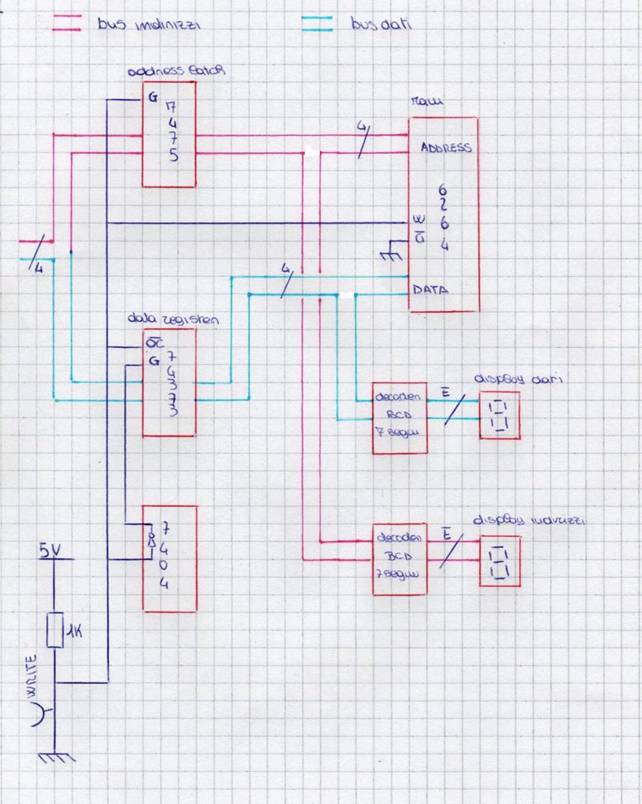 bus indirizzi
bus dati
address latch
G
7
4
7
5
ram
4
ADDRESS
6
2
6
4
W
G̅
DATA
4
4
data register
O̅C̅
G
7
4
3
7
3
display dati
decoder
BCD
7 segm
E̅
7
4
0
4
display indirizzi
decoder
BCD
7 segm
E̅
5V
1K
WRITE